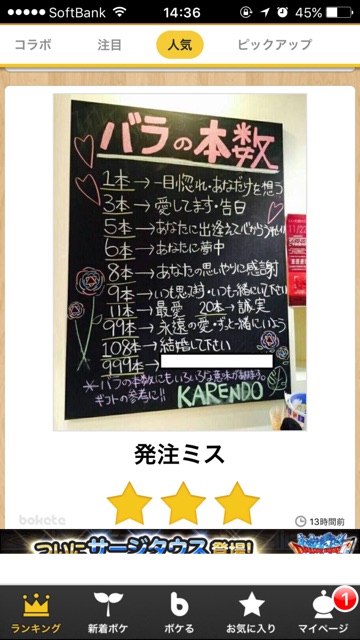 SoftBank 14:36 45%
コラボ 注目 人気 ピックアップ
バラの本数
1本→一目惚れ・あなただけを想う
3本→愛してます・告白
5本→あなたに出逢えて
6本→あなたに夢中
8本→あなたの思いやりに感謝
9本→いつも想ってます・いつも一緒にいて下さい
11本→最愛 20本→誠実
99本→永遠の愛・ずっと一緒にいよう
108本→結婚して下さい
999本→
*バラの本数にもいろいろな意味が有ります。
ギフトの参考に!!
KARENDO
発注ミス
bokete
13時間前
ついにサージタウス登場!
ランキング 新着ボケ ボケる お気に入り マイページ
1